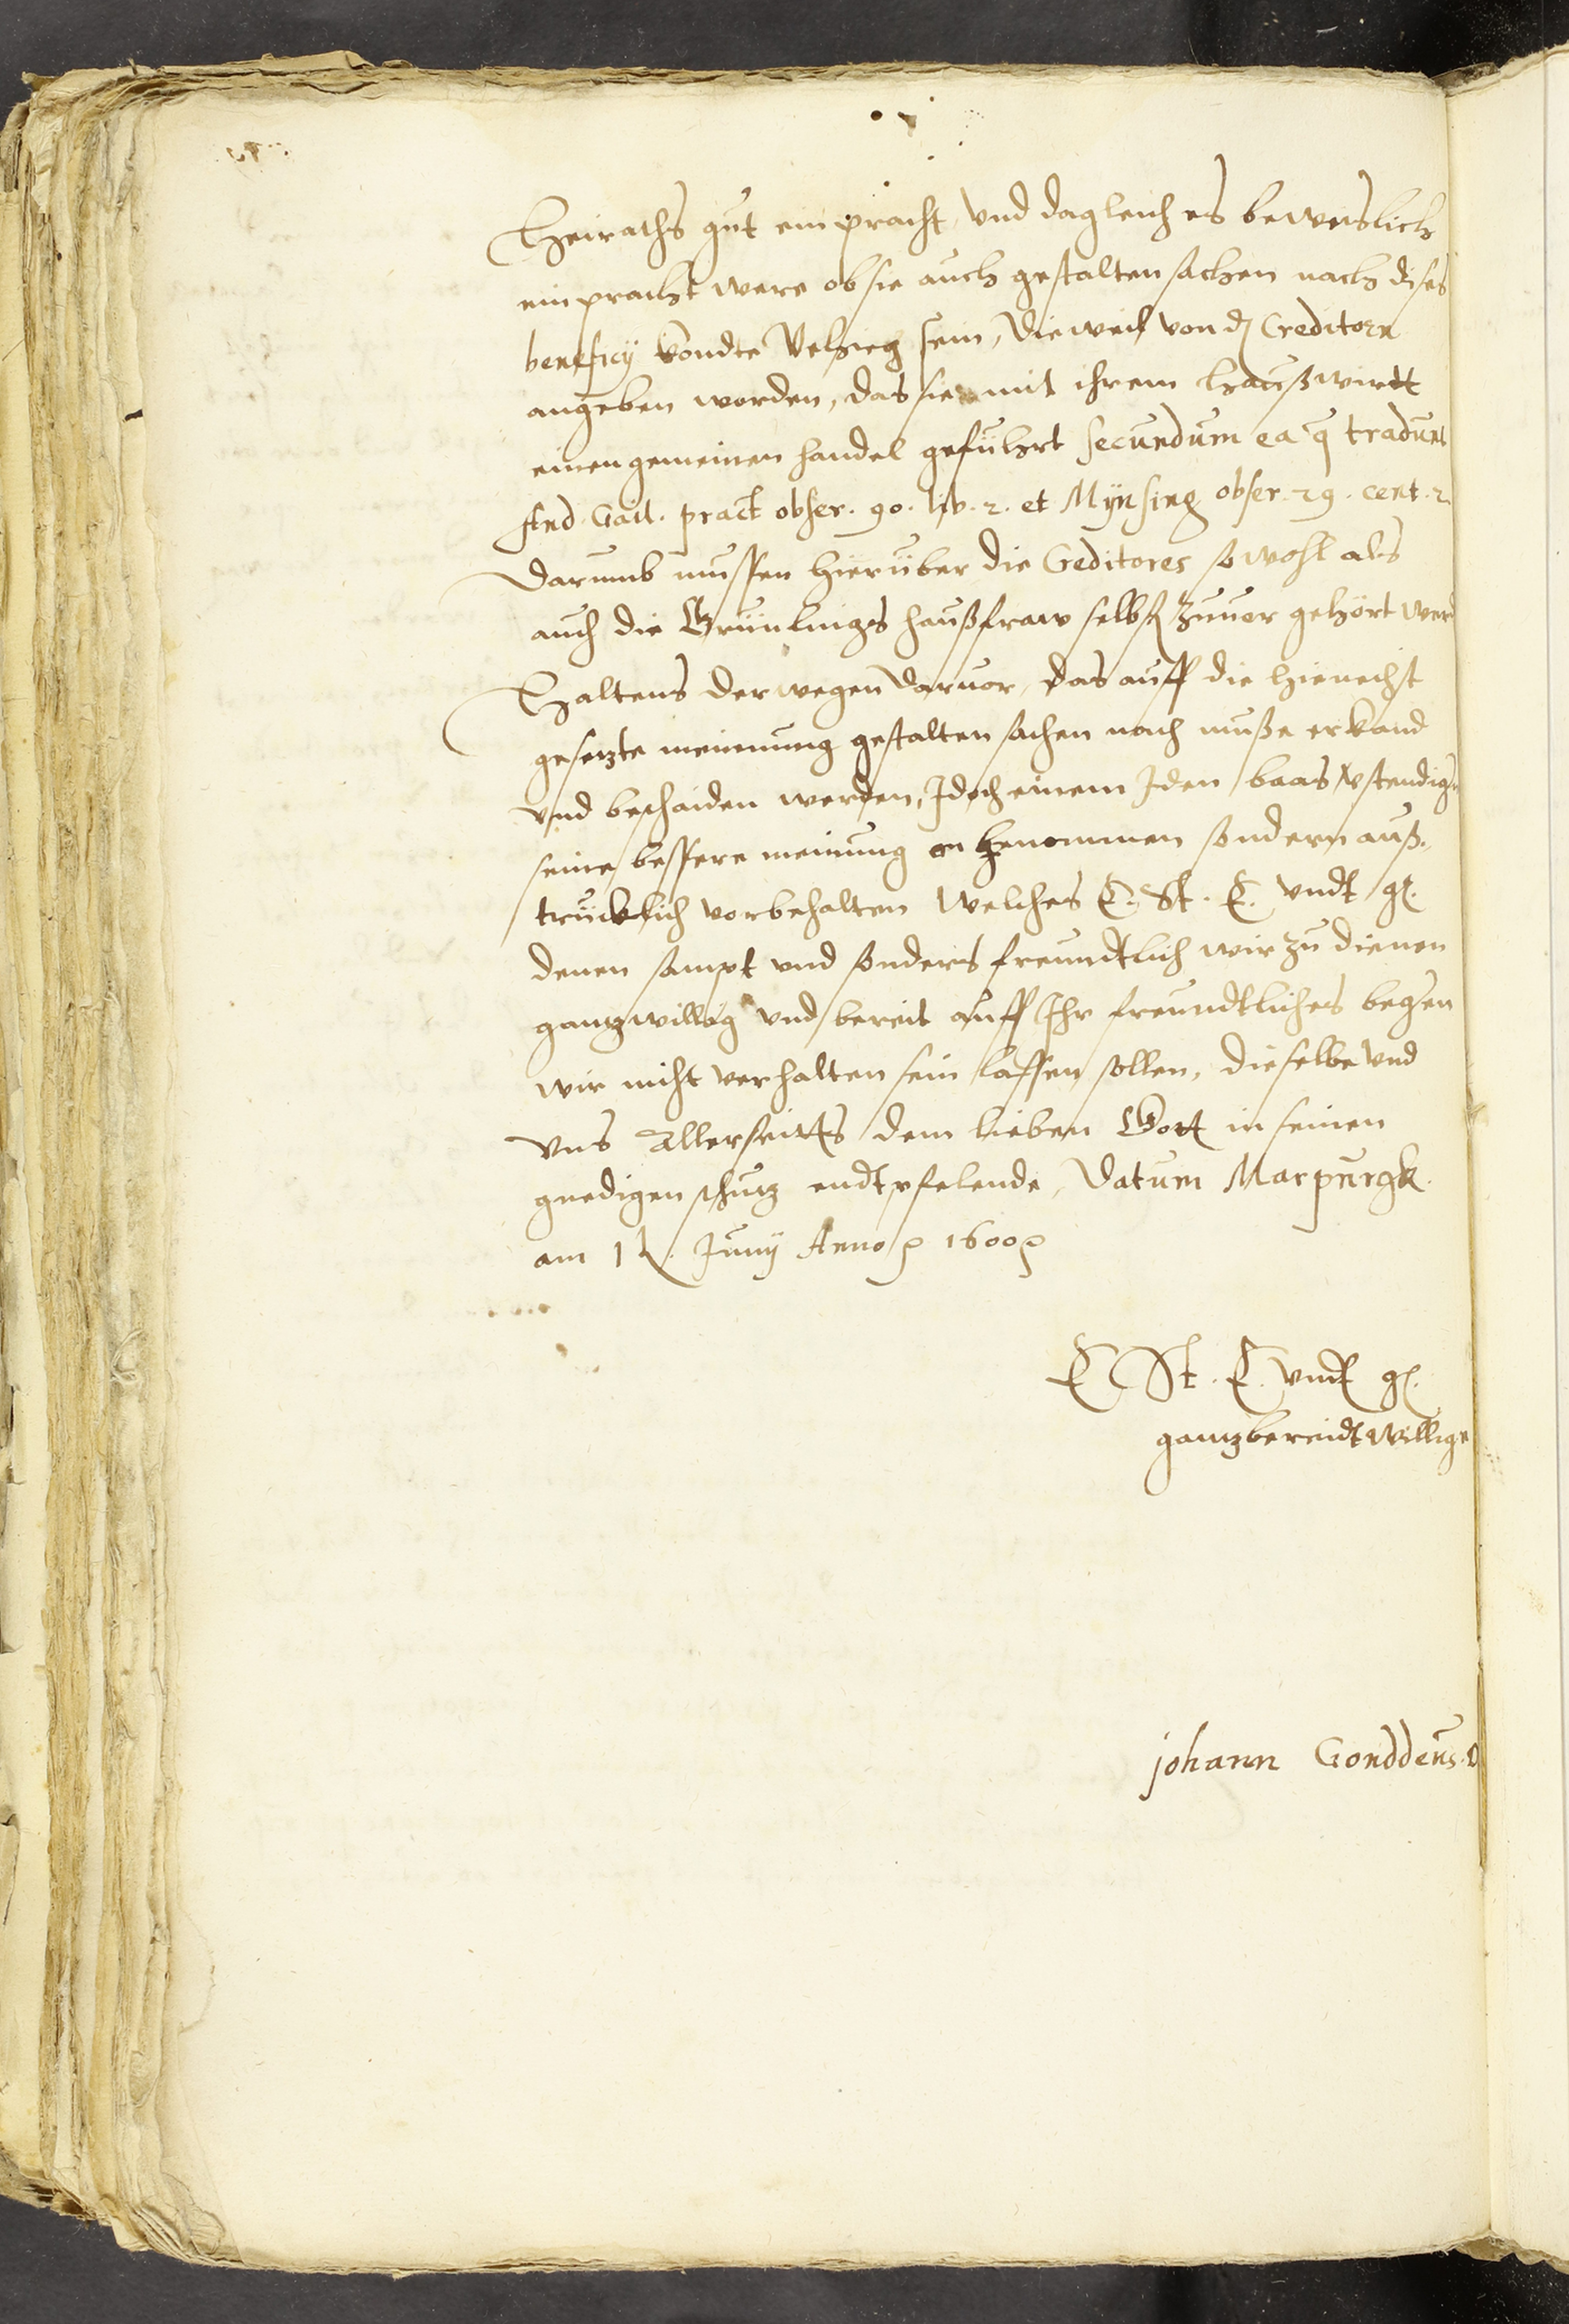 Heiraths gut einpracht, und dagleich es beweislich
einpracht were ob sie auch gestalten sachen nach dises
beneficÿ kondte Vehieg sein, Dieweil von d. Creditorn
angeben worden, das sie mit ihrem Haußwirtt
einen gemeinen handel gefuhrt secundum ea q tradunt
And. Gail. pract obser. 90. lib. 2. et Mÿnsing obser. 29. cent. 2.
Darumb mussen hieruber die Creditores so wohl als
auch die Grunlings haußfraw selbst zuuor gehört werd
Haltens derwegen daruor, das auff die hienechst
gesetzte meinung gestalten sachen nach muße erkand
und bescheiden werden, Idoch einem Jden baas vstendign
seine bessere meinung onbenommen sondern auß
trucklich vorbehalten Welches E. St. E. undt g.
denen sampt und sonders freundtlich wir zu dienen
gantz willig und bereit auff Ihr freundtliches begeren
wir nicht verhalten sein lassen sollen, dieselbe und
uns Allerseitts dem lieben Gott in seinen
gnedigen schutz endtpfelende, Datum Marpurgk.
am Junÿ Anno 1600
E St. E. undt g.
gantzbereidtwillige
johann Gonddeus. D